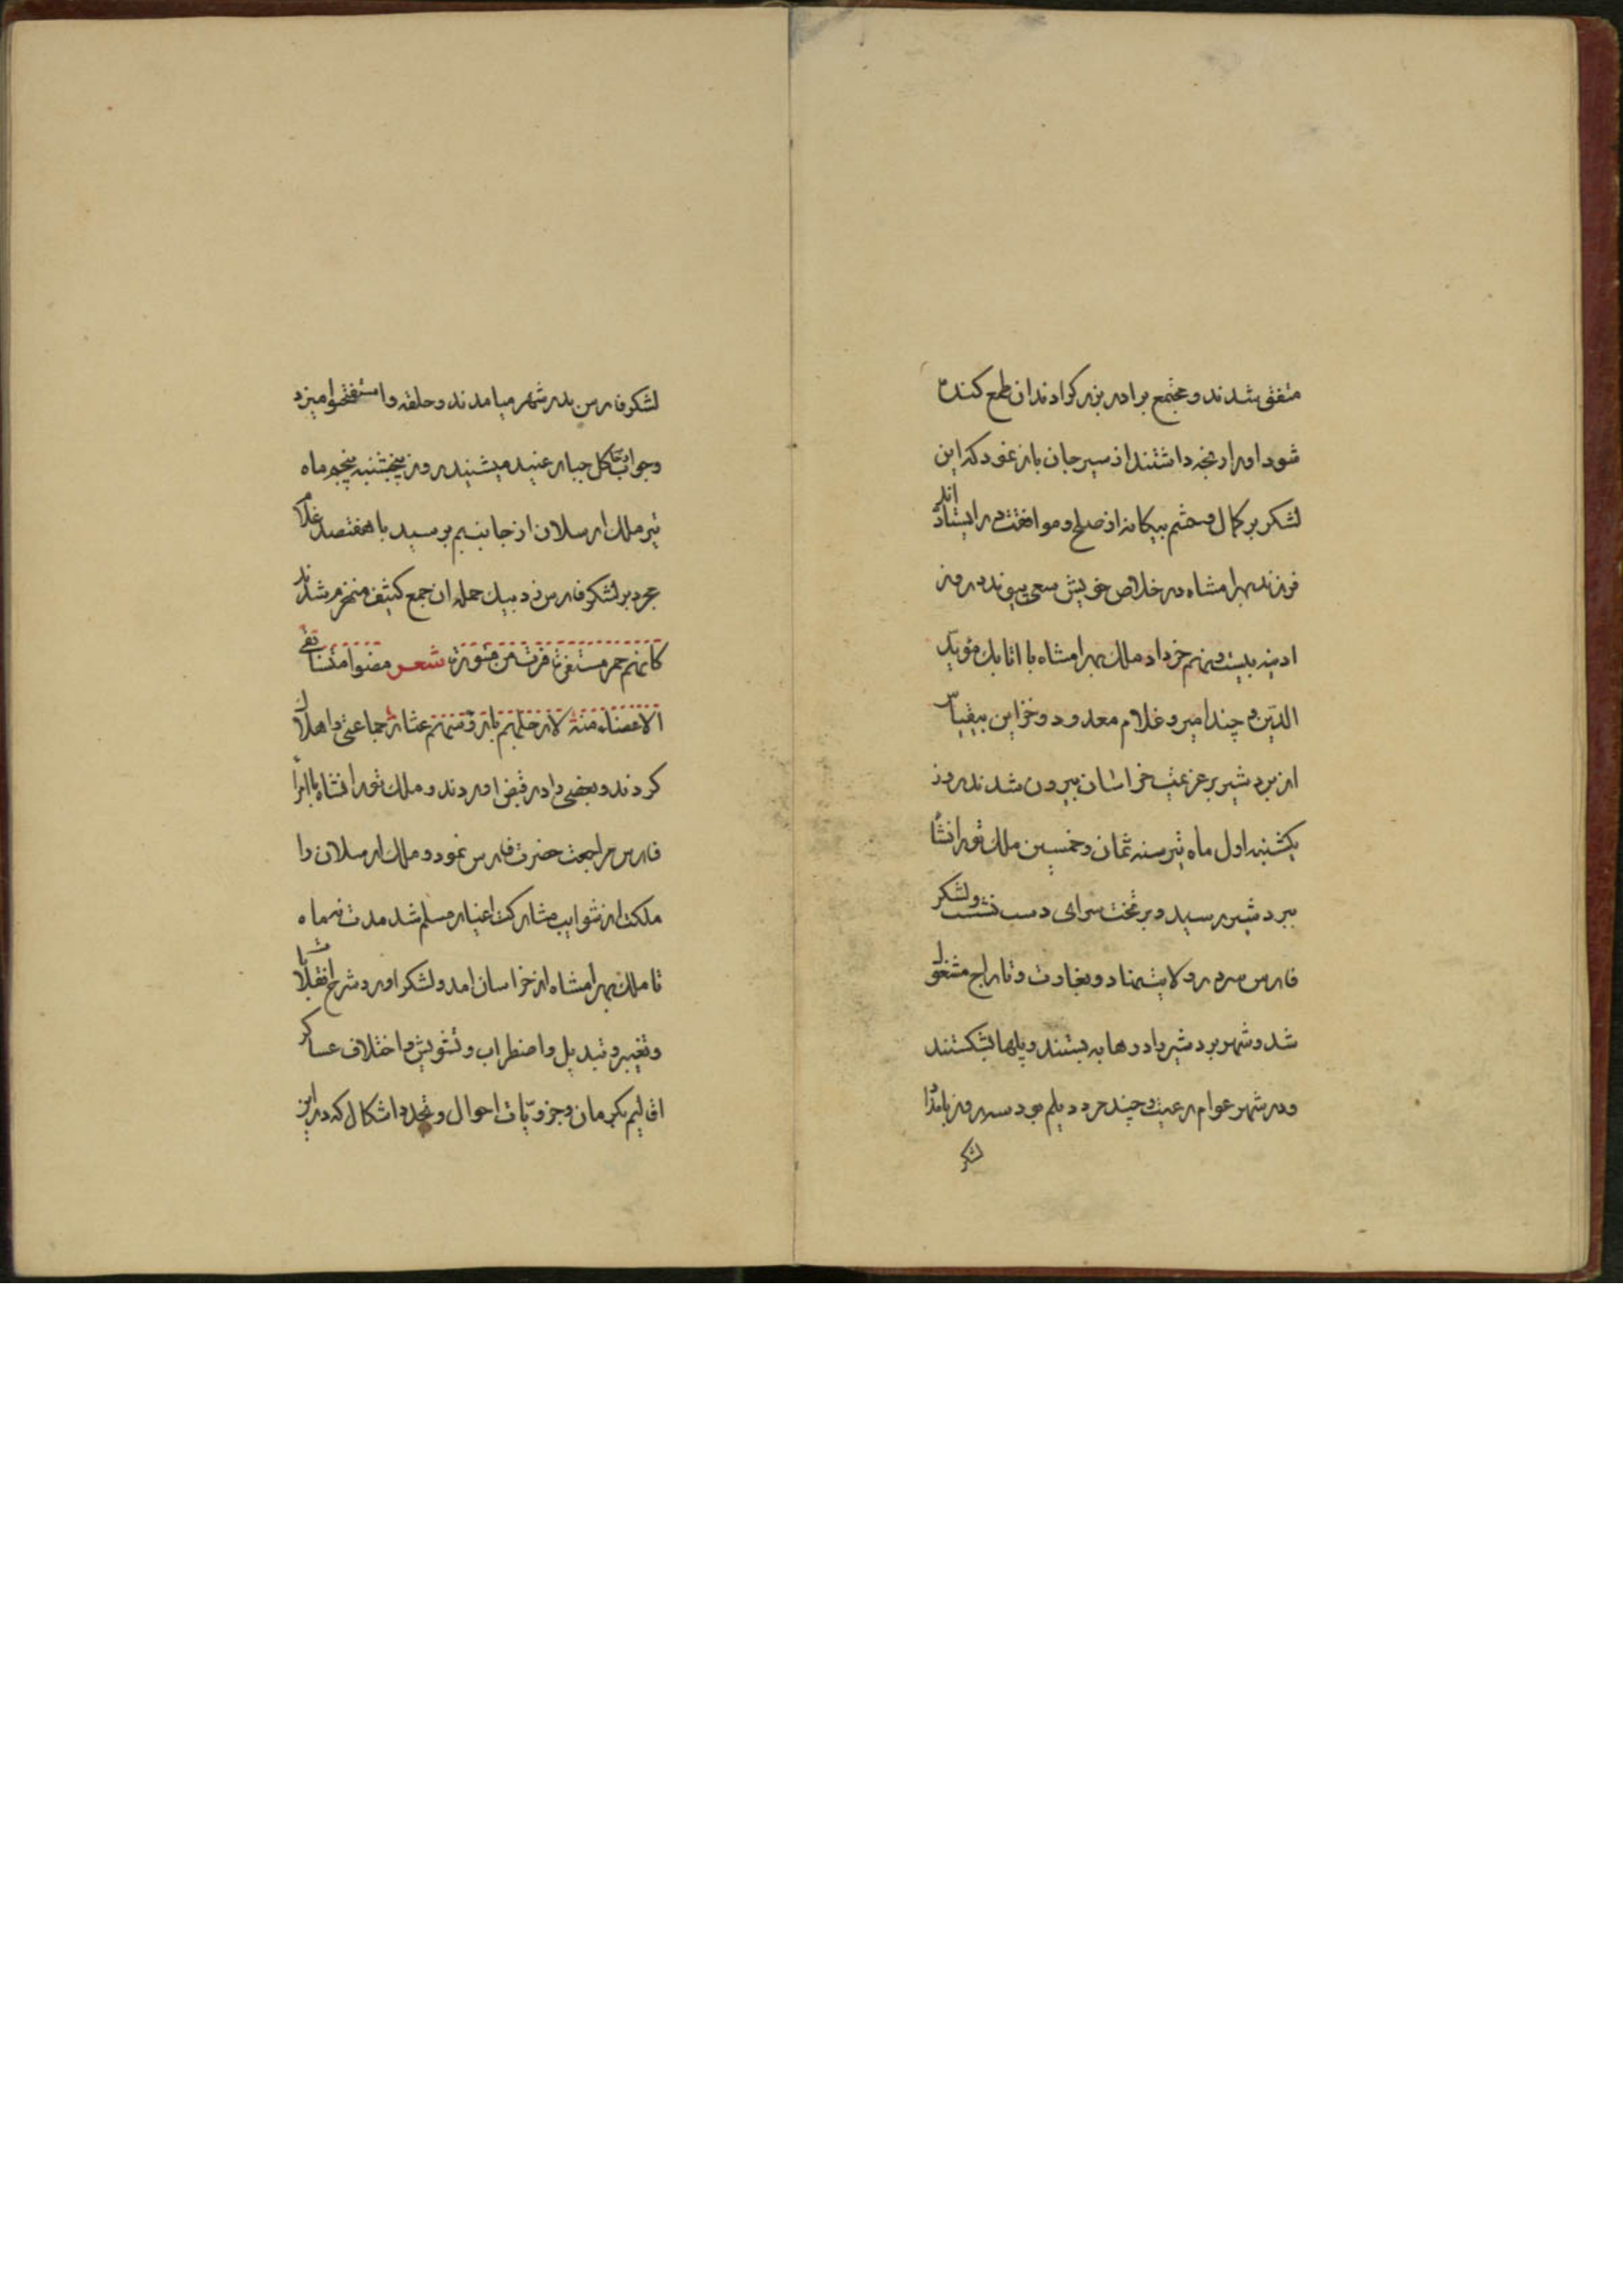 متفق شدند و مجتمع برادر بزرگ را دندان طمع کند
شود او را رنجه داشتند از سیرجان باز نمود که این
لشکر بر کمال و حشم بیکانه از صلح و موافقت در ایستاده اند
فرزند بهرامشاه در خلاص خویش سعی پیوندد روز
ادینه بیست و نهم خرداد ملک بهرامشاه با اتابک مؤید
الدین و چند امیر و غلام معدود و خزاین بیقیاس
از بردشیر بر عزیمت خراسان بیرون شدند روز
یکشنبه اول ماه تیر سنه ثمان و خمسین ملک تورانشا
ببردشیر رسید و بر تخت سرای دست نشست و لشکر
فارس در ولایت نهاد و بغارت و تاراج مشغول
شد و شهر بردشیر را درها به بستند و پلها بشکستند
و در شهر عوام رعیت و چند مرد دیلم بود سه روز بامداد
لشکر
لشکر فارس بدر شهر میامدند و حلقه واستفتحوا میزد
و جواب وخاب کل جبار عنید میشنید روز پنجشنبه پنجم ماه
تیر ملک ارسلان از جانب بم برسید با هفتصد غلام
مرد بر لشکر فارس زد بیک حمله ان جمع کثیف منهزم شدند
کانهم حمر مستنفرة فرت من قسورة شعر مضوا متسابقی
الاعضاء منه لارجلهم بارؤسهم عثار جماعتی را هلاک
کردند و بعضی را در قبض اوردند و ملک تورانشاه با امرا
فارس مراجعت حضرت فارس نمود و ملک ارسلان را
ملکت از شوایب مشارکت اغیار مسلم شد مدت نه ماه
تا ملک بهرامشاه از خراسان امد و لشکر اورد و شرح انقلابات
و تغییر و تبدیل و اضطراب و تشویش و اختلاف عساکر
اقالیم بکرمان و جزویات احوال و تجدد اشکال که در این